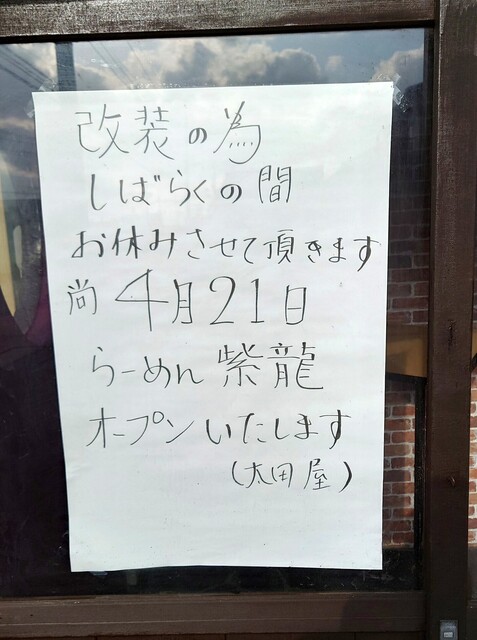 改装の為
しばらくの間
お休みさせて頂きます
尚 4月21日
らーめん 紫龍
オープンいたします
(太田屋)